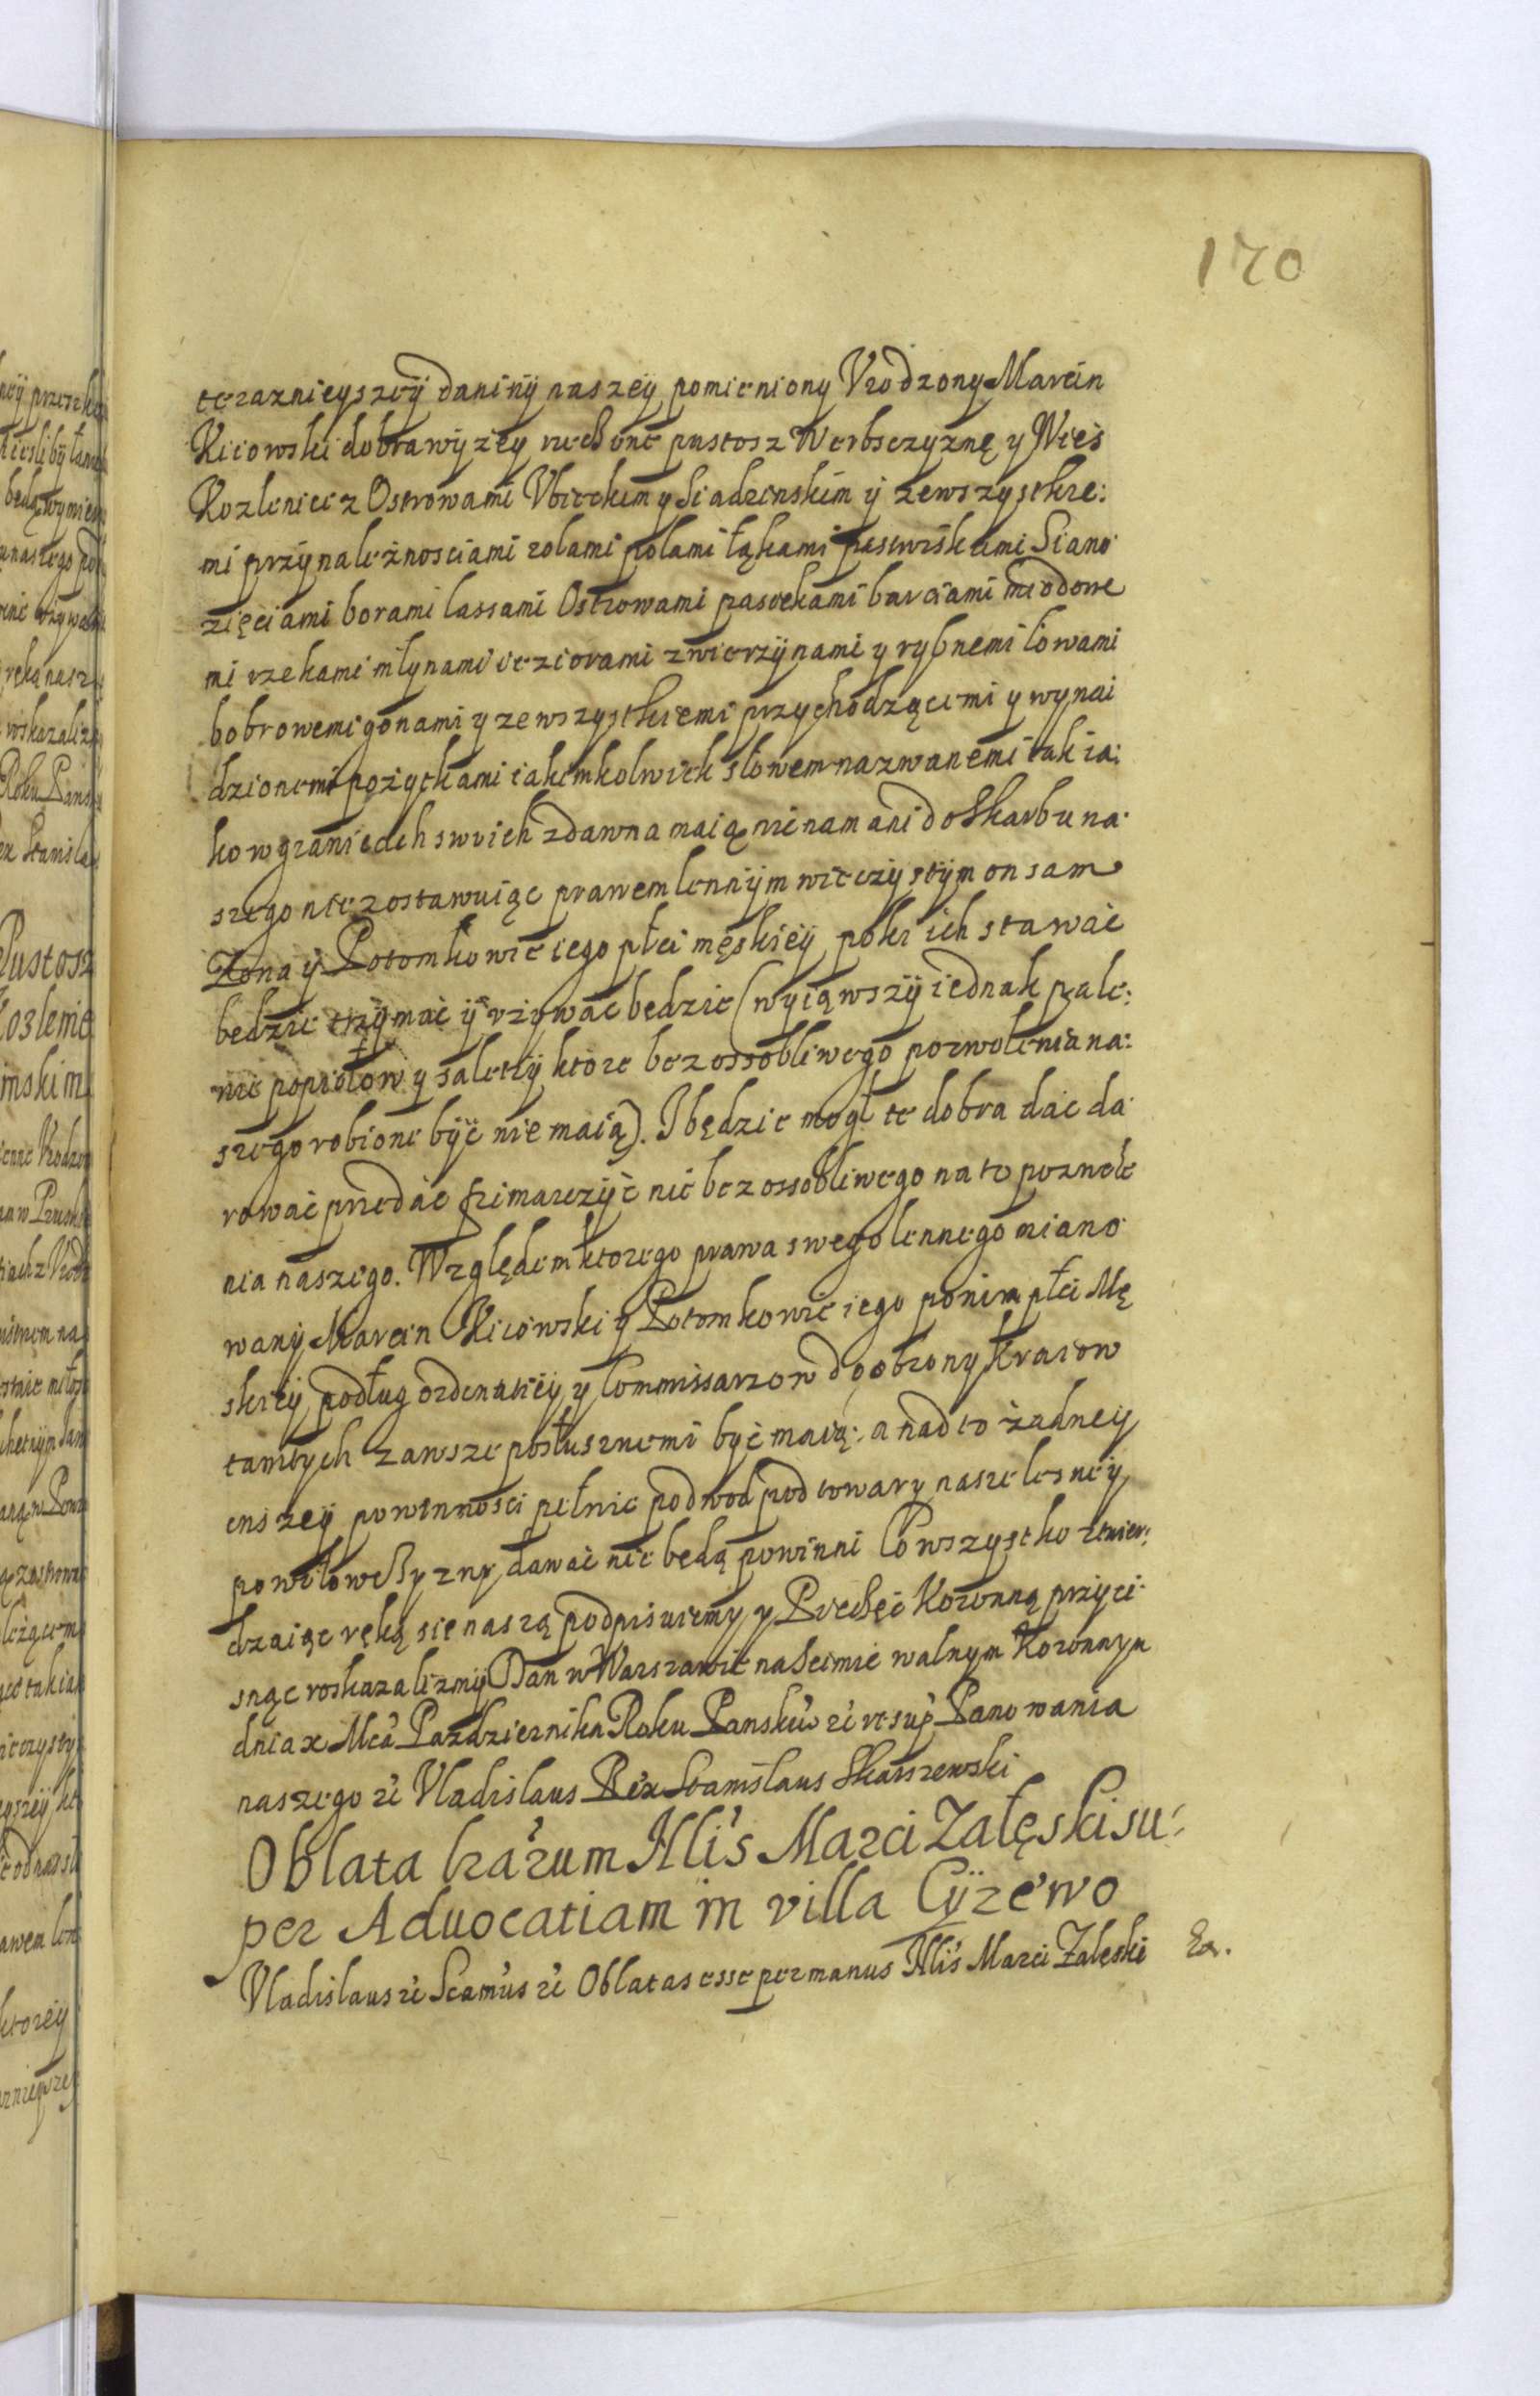 170
terazniejszey daniny naszey pomieniony Vrodzony Marcin
Kicowski dobra wyzey rzeczone pustosz Werbsczyznę y Wieś
Kozlenice z Ostrowami y Siadzenskim y ze wszystkie:
mi przynależnosciami rolami polami łąkami pastwiskami Siano
zięciami borami lassami Ostrowami pasiekami barciami miodowe
mi rzekami młynami ieziorami zwierzynami y rybnemi łowami
bobrowemi gonami y ze wszystkiemi przychodzącemi y wynai
dzionemi pożytkami iakimkolwiek słowem nazwanemi tak ia:
ko w granicach swoich zdawna maią nic nam ani do Skarbu na
szego nie zostawuiąc prawem lennym wieczystym on sam
Zona y Potomkowie iego płci męskiey poki ich stawać
będzie trzymać y vzywac bedzie (wyiąwszy iednak pale:
nie popiołow y saletry ktore bez ossobliwego pozwolenia na:
szego robione być nie maią). I będzie mogł te dobra dać da
rować przedać frimarczyć nie bez ossobliwego na to pozwole
nia naszego. Względem ktorego prawa swego lennego miano
wany Marcin Kicowski y Potomkowie iego po nim płci Mę
skiey podług ordinatiey y Commissarzow do obrony Kraiow
tamtych zawsze posłusznemi być maią: a nad to żadney
inszey powinnosci pełnic podwod pod towary nasze lesne y
powołowsczyzny dawać nie będą powinni Co wszystko ztwier:
dzaiąc ręką się naszą podpisuiemy y Pieczęć Koronną przyci
snąc roskazalizmy Dan w Warszawie na Seimie walnym Koronnym
dnia x Mca Pazdziernika Roku Pansku ut supra Panowania
naszego Vladislaus Rex Stanislaus Skarszewski
Oblata lrarum Nlis Marci Załęski su:
per Aduocatiam in villa Cÿzewo
Vladislaus Oblatas esse per manus Nlis Marci Zaleski Ex.